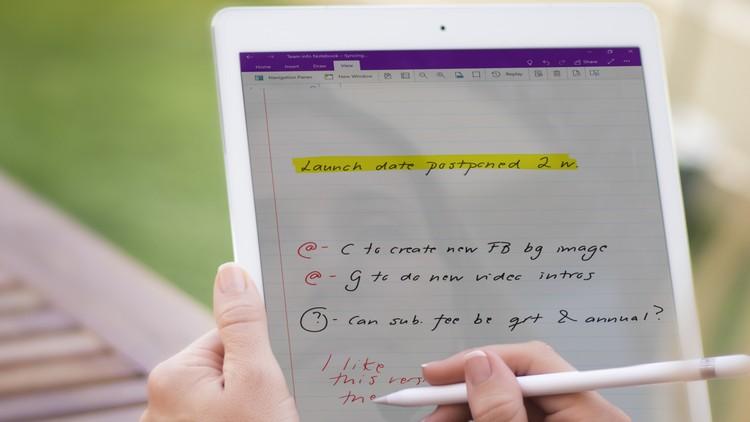 Team Info Notebook – Syncing...
Home Insert Draw View
Share
Navigation Panes New Window Replay
Launch date postponed 2 w.
@- C to create new FB bg image
@- G to do new video intros
?- Can sub. fee be qrt & annual?
I like
this vers
the